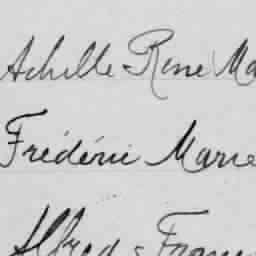 Achille René Ma
Frédéric Marie
Alfred Fran